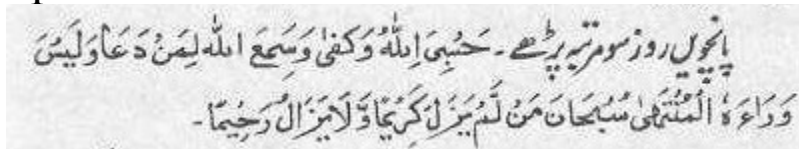 پانچویں روز سو مرتبہ پڑھے۔ حَسْبِیَ اللّٰہُ وَکَفٰی وَسَمِعَ اللّٰہ لِمَنْ دَعَا وَلَیْسَ
وَرَاءَہُ الْمُنْتَهٰی سُبْحَانَ مَنْ لَّمْ یَزَلْ کَرِیْمًا وَّلَا یَزَالُ رَحِیْمًا۔